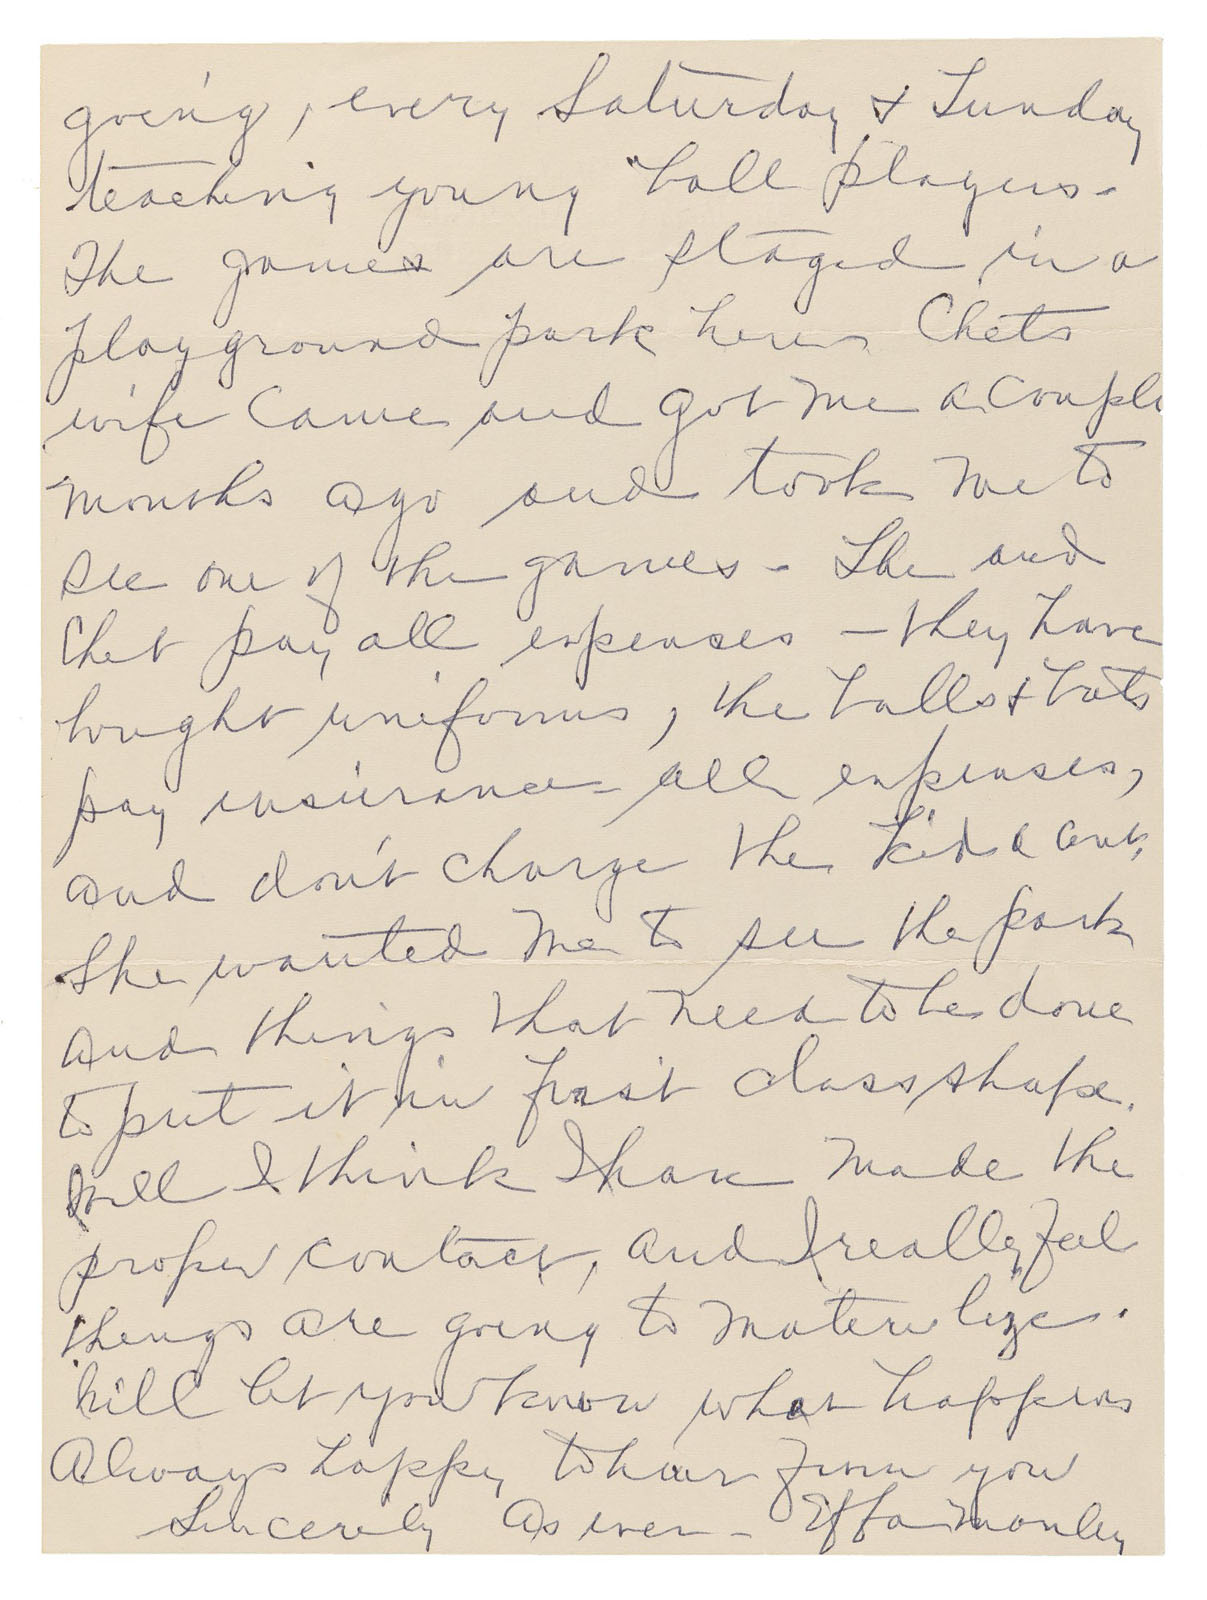 going, every Saturday & Sunday
teaching young ball players.
The games are staged in a
playground park here. Chets
wife came and got me a couple
months ago and took me to
see one of the games - She and
Chet pay all expenses - they have
bought uniforms, the balls & bats
pay insurance - all expenses,
and don't charge the kids a cent,
She wanted me to see the park
and things that need to be done
to put it in first class shape.
Well I think I have made the
proper contact, and I really feel
things are going to materialize.
Will let you know what happens
Always happy to hear from you
Sincerely As ever - Effa Manley